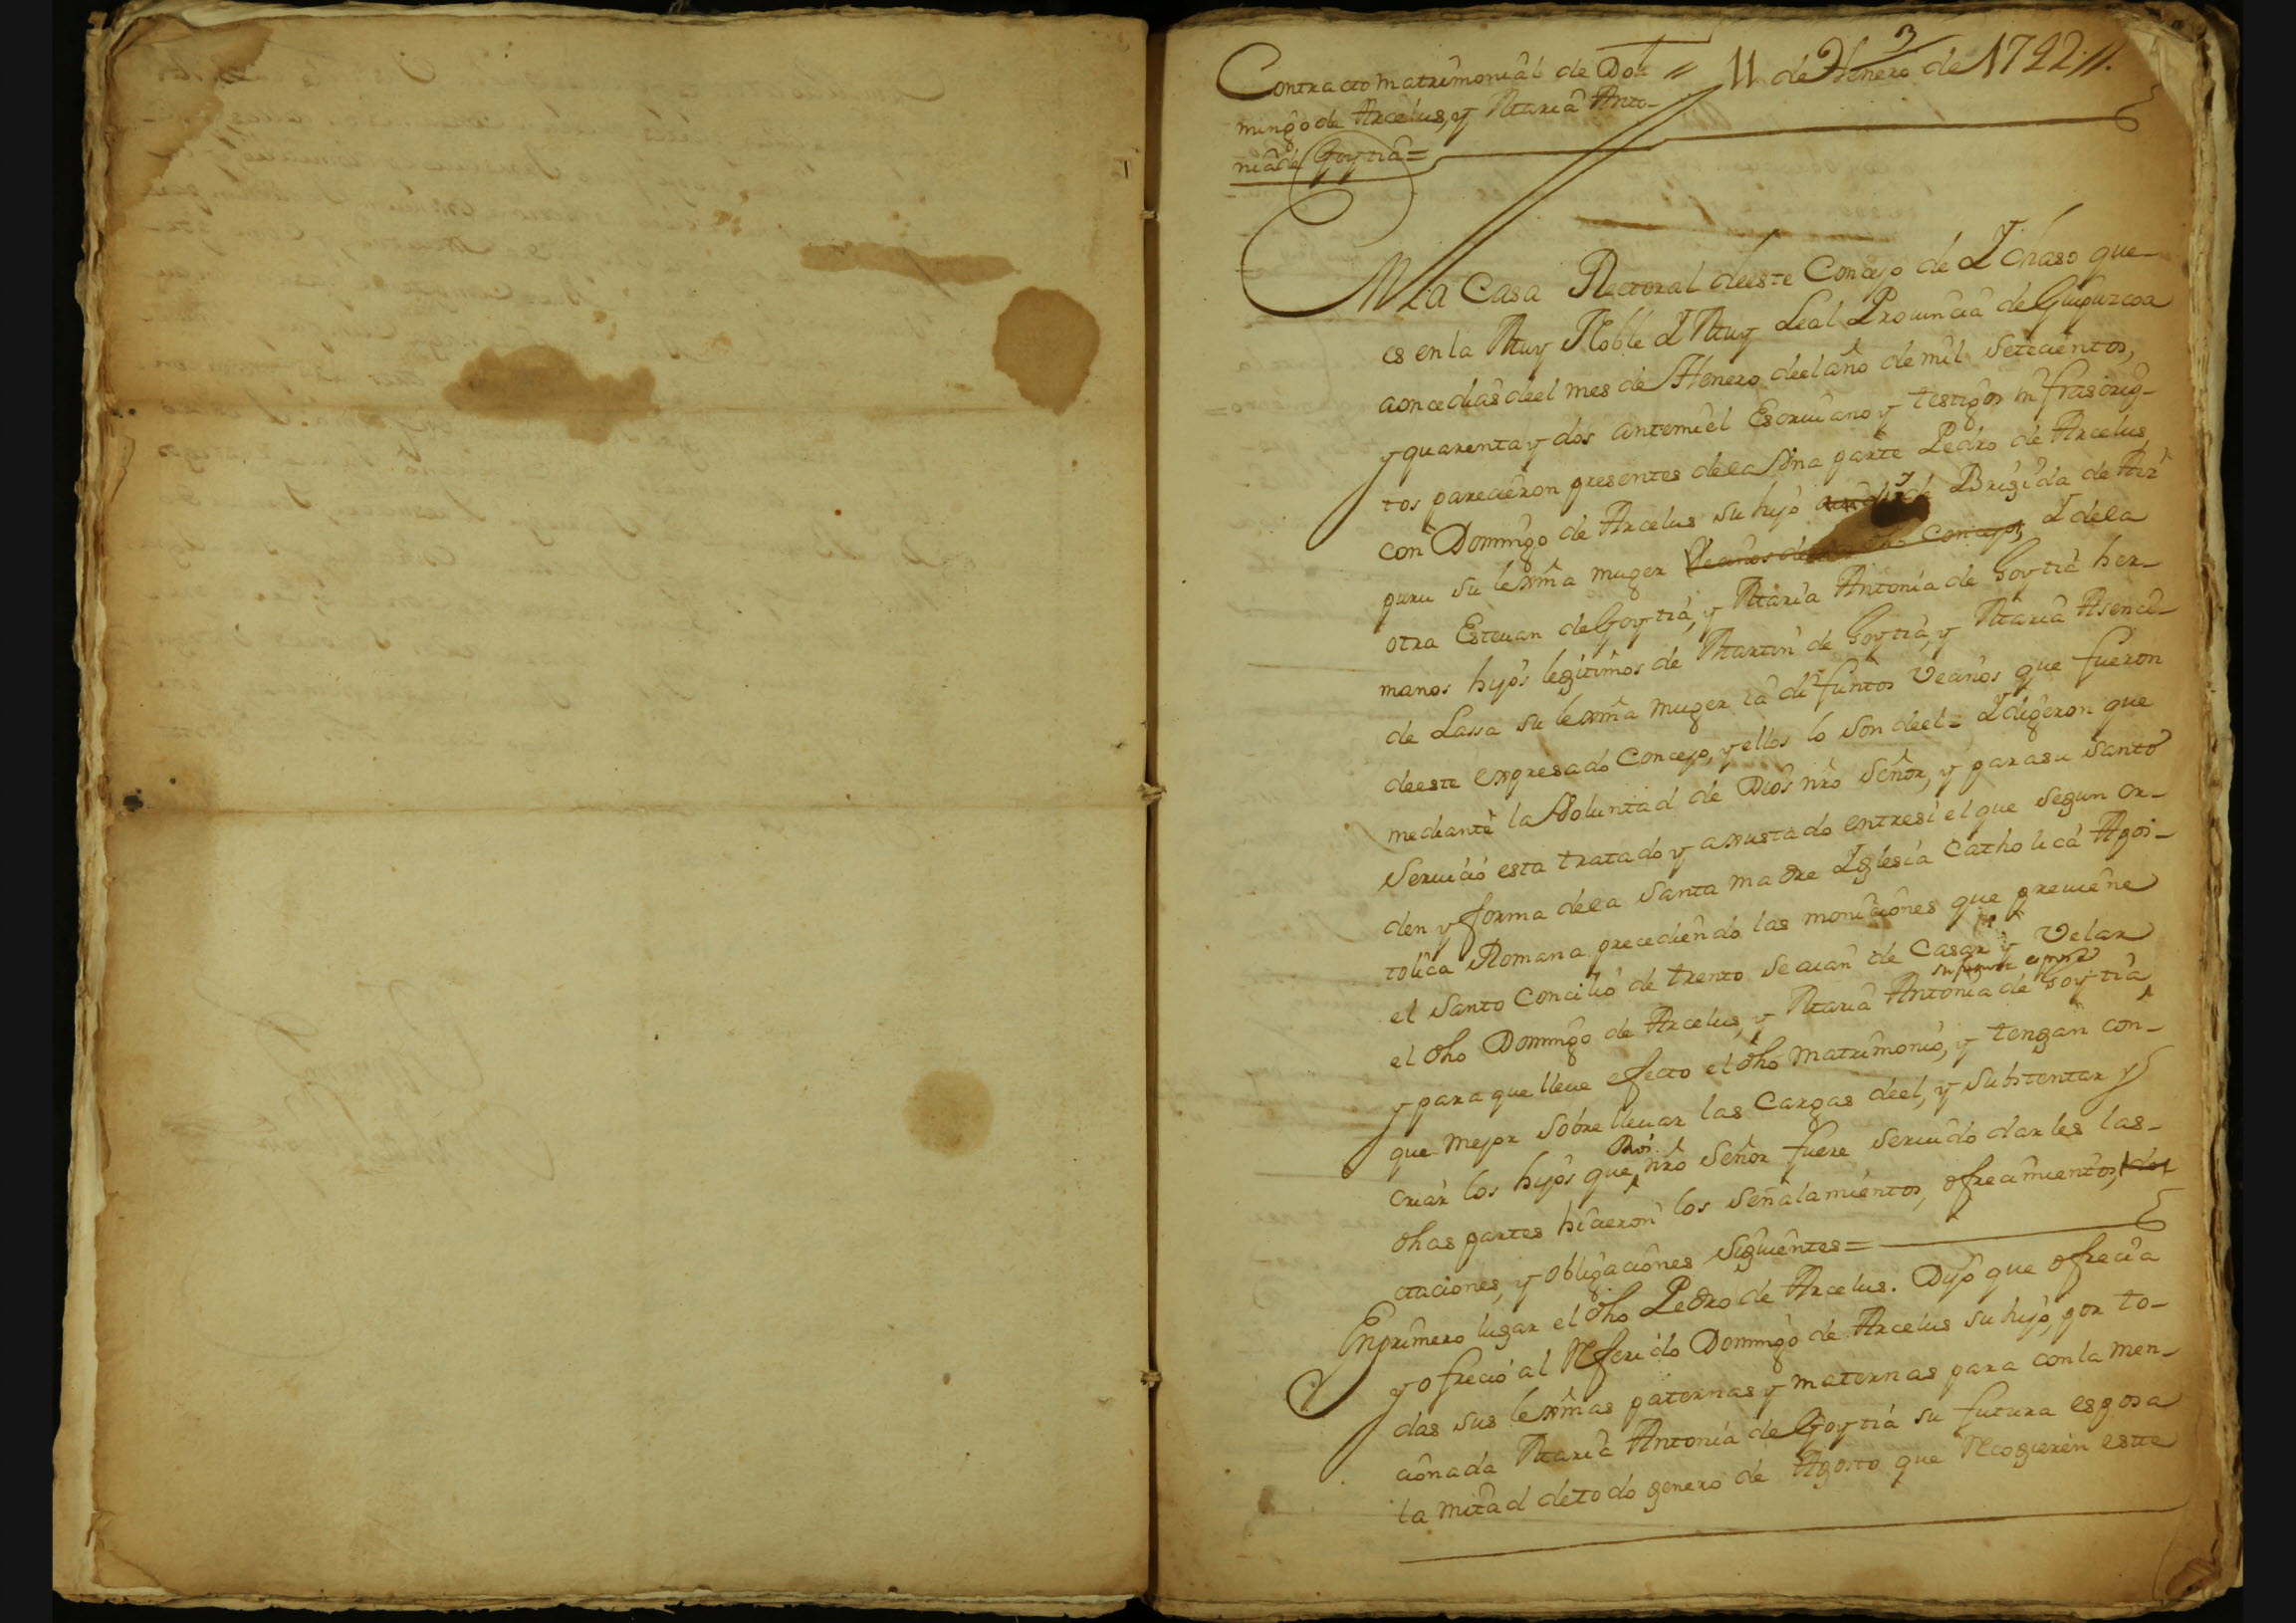 3
Contracto matrimonial de Do- // 11 de Henero de 1742 //.
mingo de Arcelus, y Maria Anto-
nia de Goytia =
En la Casa Rectoral deeste Concejo de Ichaso que
es en la Muy Noble I Muy Leal Prouincia de Guipuzcoa
aonce dias deel mes de Henero deel año de mil setecientos,
y quarenta y dos antemi el Escriuano y testigos infrascrip-
tos parecieron presentes dela Vna parte Pedro de Arcelus,
con Domingo de Arcelus su hijo y de Brigida de Aiz
puru su lexma muger Vecinos de Concejo, I dela
otra Esteuan de Goytia, y Maria Antonia de Goytia her-
manos hijos legitimos de Martin de Goytia, y Maria Asenci-
de Lassa su lexma muger ia difuntos Vecinos que fueron
deeste expresado Concejo, y ellos lo son deel = I digeron que
mediante la Voluntad de Dios nro Señor, y para su santo
Seruicio esta tratado y axustado entresi el que segun or-
den y forma dela Santa madre Iglesia Catholica Apos-
tolica Romana precediendo las moniciones que preuiene
el Santo Concilio de trento se aian de Casar y Velar
el dho Domingo de Arcelus, y Maria Antonia de Goytia
su futura esposa
y para que lleue efecto el dho matrimonio, y tengan con-
que mejor sobrelleuar las Cargas deel, y substentar y
criar los hijos que Dios nro Señor fuere seruido darles las-
dhas partes hicieron los señalamientos, ofrecimientos, do
ctaciones, y obligaciones siguientes =
Enprimero lugar el dho Pedro de Arcelus. Dijo que ofrecia
y ofrecio al Referido Domingo de Arcelus su hijo, por to-
das sus lexmas paternas y maternas para con la men-
cionada Maria Antonia de Goytia su futura esposa
la mitad de todo genero de Agosto que Recogieren este